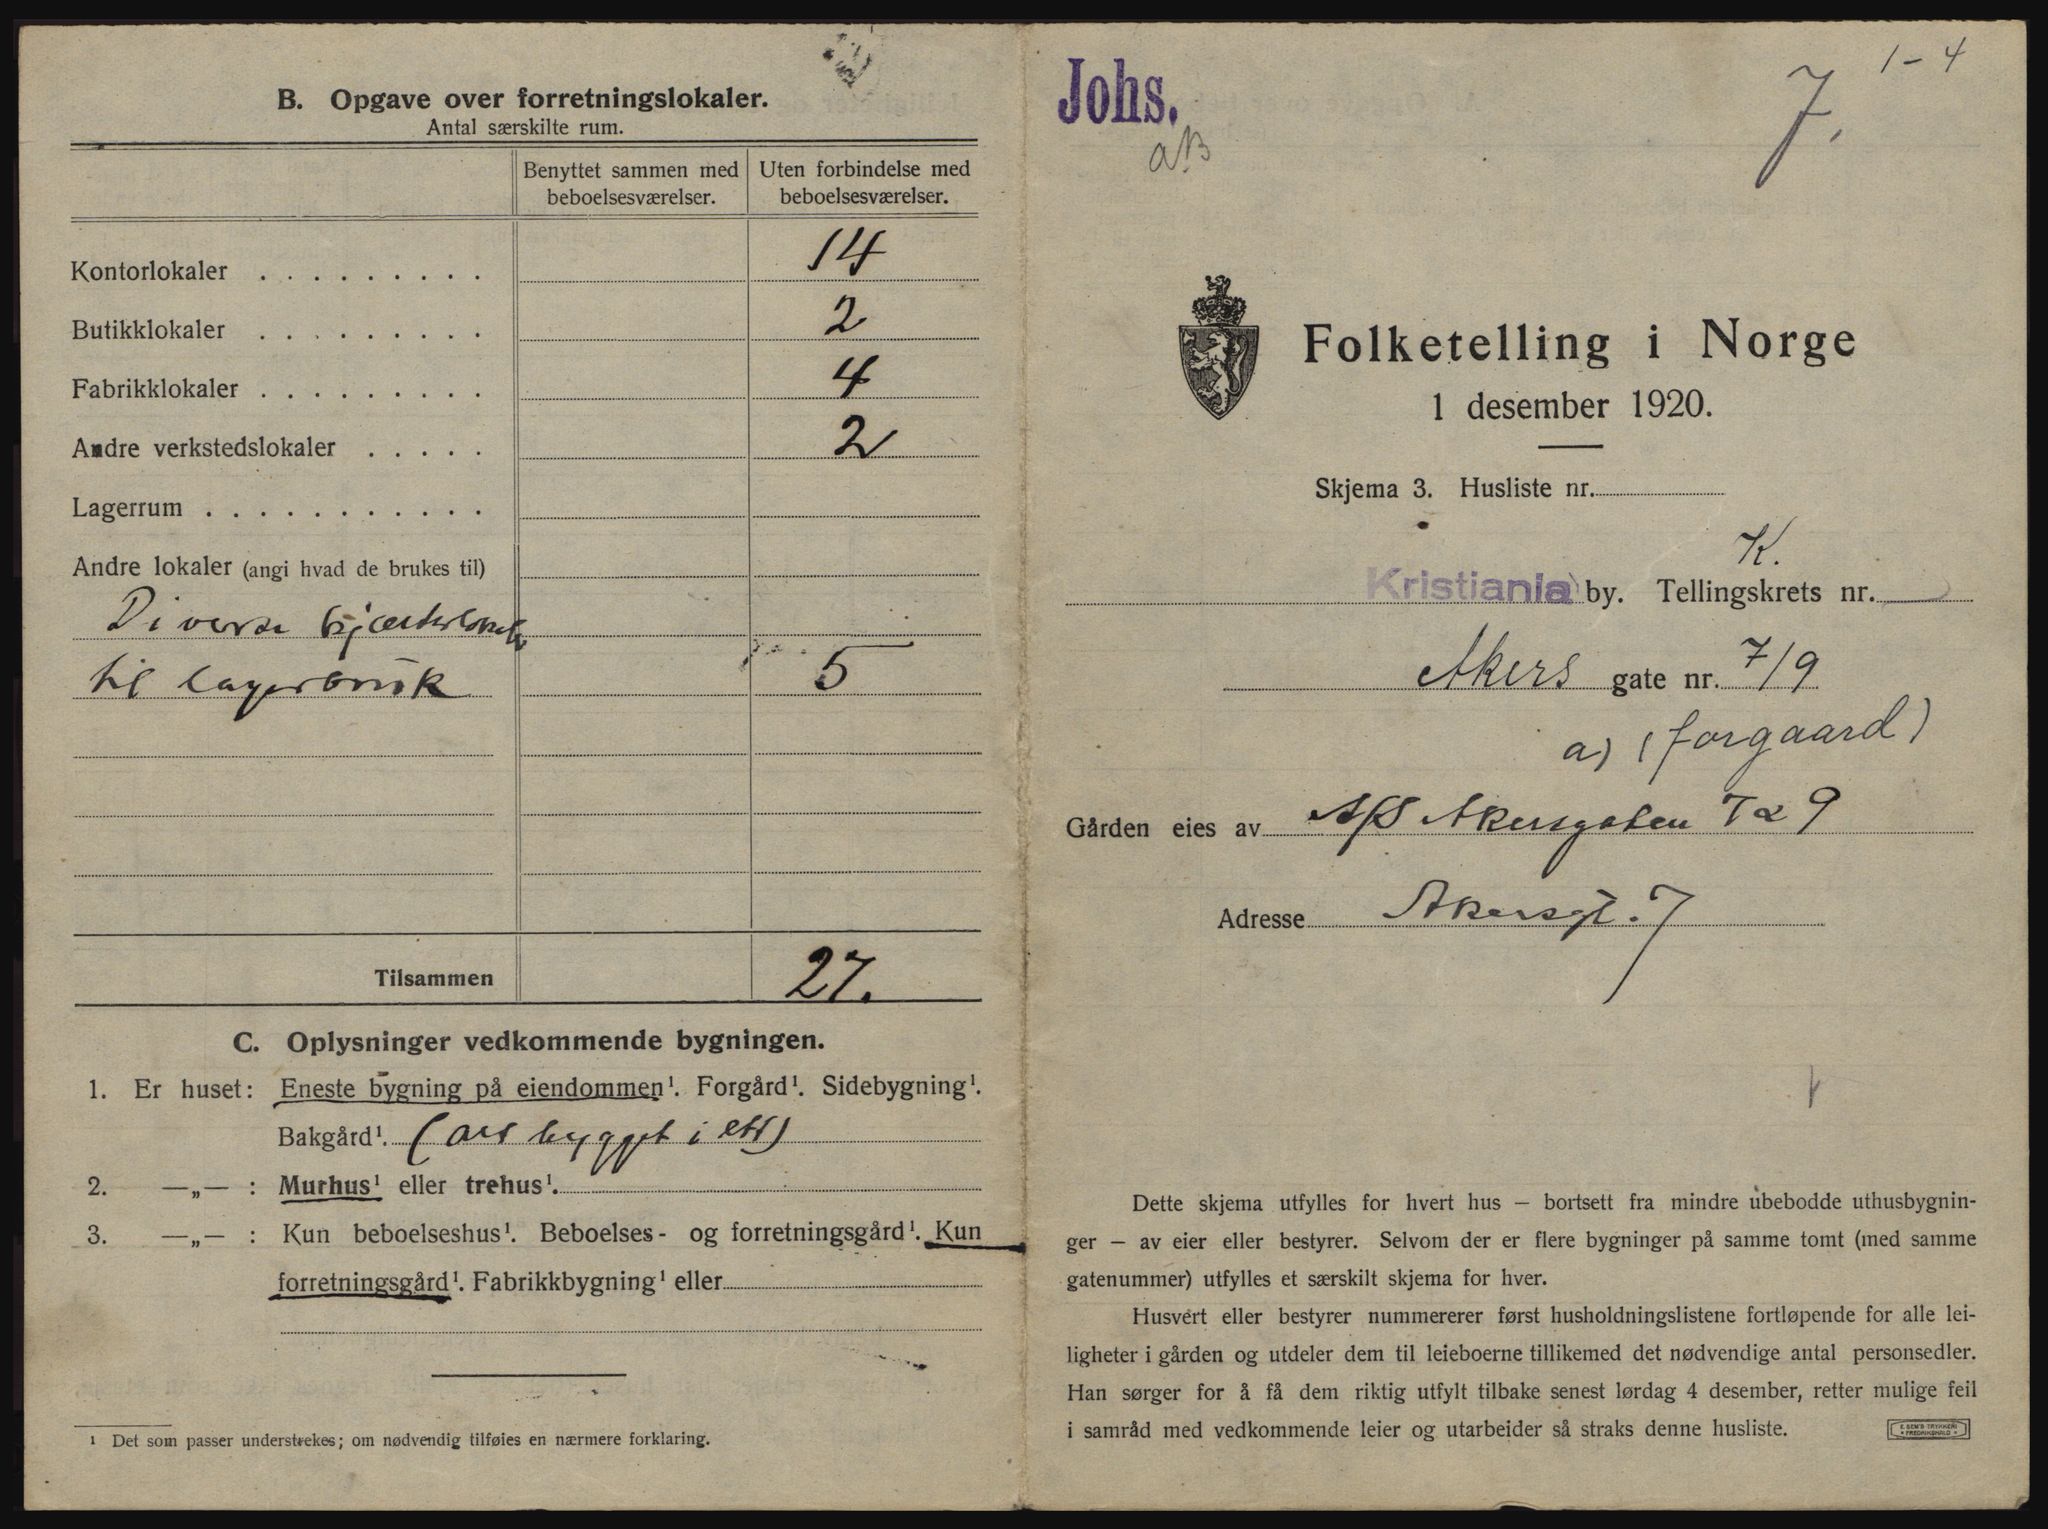 B. Opgave over forretningslokaler.
Antal særskilte rum.
Benyttet sammen med beboelsesværelser.
Uten forbindelse med beboelsesværelser.
Kontorlokaler . . . . . . . . . 14
Butikklokaler . . . . . . . . . 2
Fabrikklokaler . . . . . . . . . 4
Andre verkstedslokaler . . . . . 2
Lagerrum . . . . . . . . . . .
Andre lokaler (angi hvad de brukes til)
Diverse kjælderlokaler
til lagerbruk 5
Tilsammen 27.
C. Oplysninger vedkommende bygningen.
1. Er huset: Eneste bygning på eiendommen¹. Forgård¹. Sidebygning¹.
Bakgård¹. (alt bygget i ett)
2. —„— : Murhus¹ eller trehus¹.
3. —„— : Kun beboelseshus¹. Beboelses- og forretningsgård¹. Kun
forretningsgård¹. Fabrikkbygning¹ eller
¹ Det som passer understrekes; om nødvendig tilføies en nærmere forklaring.
Johs.
aB
7.
1-4
Folketelling i Norge
1 desember 1920.
Skjema 3. Husliste nr.
K.
Kristiania by. Tellingskrets nr.
Akers gate nr. 7/9
a) (forgaard)
Gården eies av A/S Akersgaten 7 & 9
Adresse Akersgt. 7
Dette skjema utfylles for hvert hus – bortsett fra mindre ubebodde uthusbygnin-
ger – av eier eller bestyrer. Selvom der er flere bygninger på samme tomt (med samme
gatenummer) utfylles et særskilt skjema for hver.
Husvert eller bestyrer nummererer først husholdningslistene fortløpende for alle lei-
ligheter i gården og utdeler dem til leieboerne tillikemed det nødvendige antal personsedler.
Han sørger for å få dem riktig utfylt tilbake senest lørdag 4 desember, retter mulige feil
i samråd med vedkommende leier og utarbeider så straks denne husliste.
E. SEM'S TRYKKERI
FREDRIKSHALD